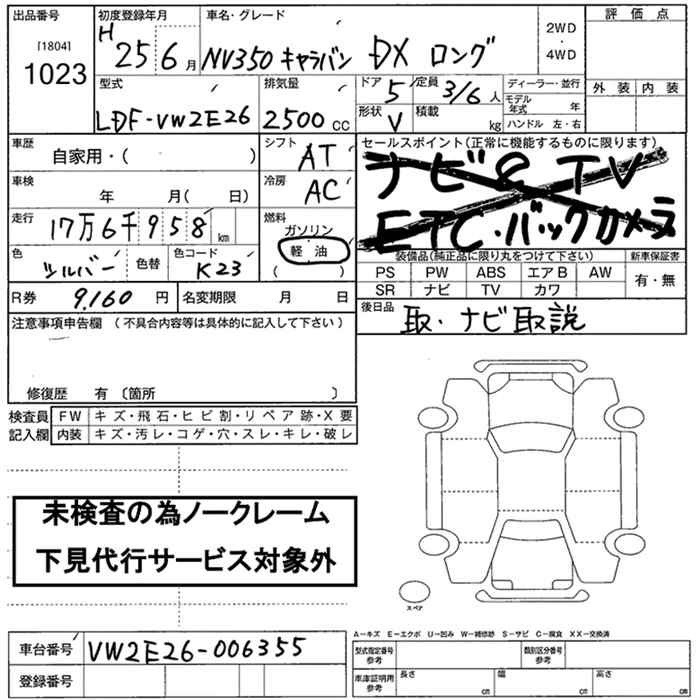 出品番号
[1804]
1023
初度登録年月
H 25 6 月
車名・グレード
NV350 キャラバン DX ロング
2WD
・
4WD
評価点
外装 内装
型式
LDF-VW2E26
排気量
2500 CC
ドア 5
定員 3/6 人
形状 V
積載 kg
ディーラー・並行
モデル年式 年
ハンドル 左・右
車歴
自家用・( )
シフト AT
車検
年 月( 日)
冷房 AC
走行
17万6千958 km
燃料
ガソリン
軽油
( )
色 シルバー
色替
色コード K23
R券 9,160 円
名変期限 月 日
セールスポイント(正常に機能するものに限ります)
ナビ & TV
ETC・バックカメラ
装備品(純正品に限り丸をつけて下さい)
新車保証書
PS PW ABS エアB AW
SR ナビ TV カワ
有・無
後日品
取・ナビ取説
注意事項申告欄 (不具合内容等は具体的に記入して下さい)
修復歴 有 〔箇所 〕
検査員記入欄
FW キズ・飛石・ヒビ割・リペア跡・X要
内装 キズ・汚レ・コゲ・穴・スレ・キレ・破レ
未検査の為ノークレーム
下見代行サービス対象外
スペア
車台番号 VW2E26-006355
登録番号
A－キズ E－エクボ U－凹み W－補修跡 S－サビ C－腐食 XX－交換済
型式指定番号 参考
類別区分番号 参考
車庫証明用 参考
長さ cm
幅 cm
高さ cm